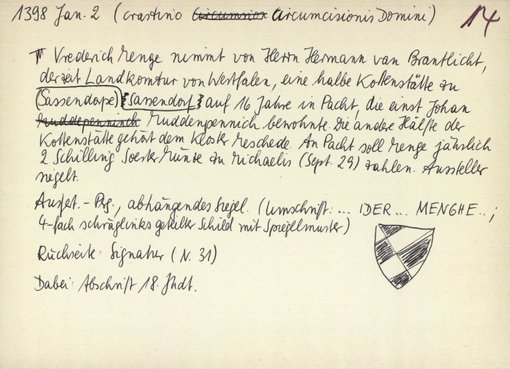 1398 Jan. 2 (crastino Circumcision Circumcisionis Domini) 14
Vrederich Menge nimmt von Herrn Hermann van Brantlicht,
derzeit Landkomtur von Westfalen, eine halbe Kottenstätte zu
(Sassendorpe) {Sassendorf} auf 16 Jahre in Pacht, die einst Johan
Muddepenninck Muddenpennich bewohnte. Die andere Hälfte der
Kottenstätte gehört dem Kloster Meschede. An Pacht soll Menge jährlich
2 Schilling Soester Münze zu Michaelis (Sept. 29) zahlen. Aussteller
siegelt.
Ausf.-Perg., abhängendes Siegel. (Umschrift: ... IDER ... MENGHE..;
4-fach schräglinks geteilter Schild mit Spiegelmuster)
Rückseite: Signatur (N. 31)
Dabei: Abschrift 18. Jhdt.